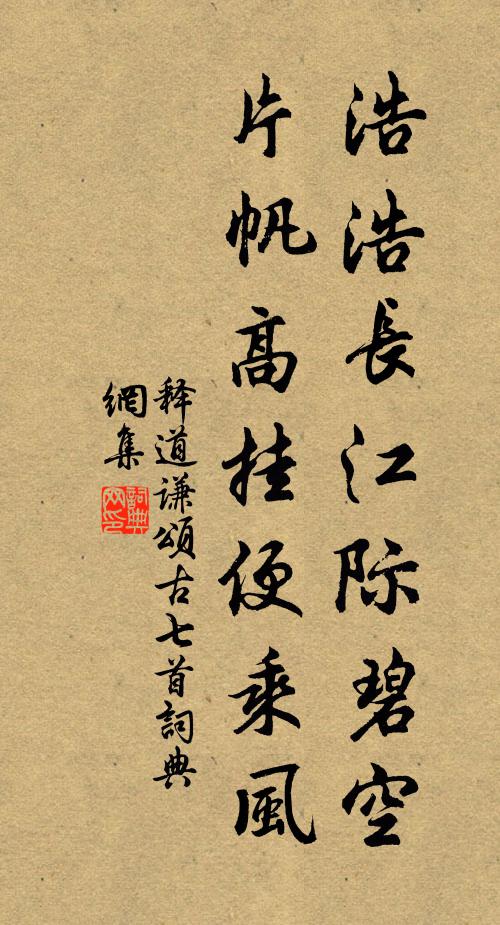 浩浩長江际碧空
片帆高挂便乘風
释道谦頌古七首詞典
網集
詞典
网印